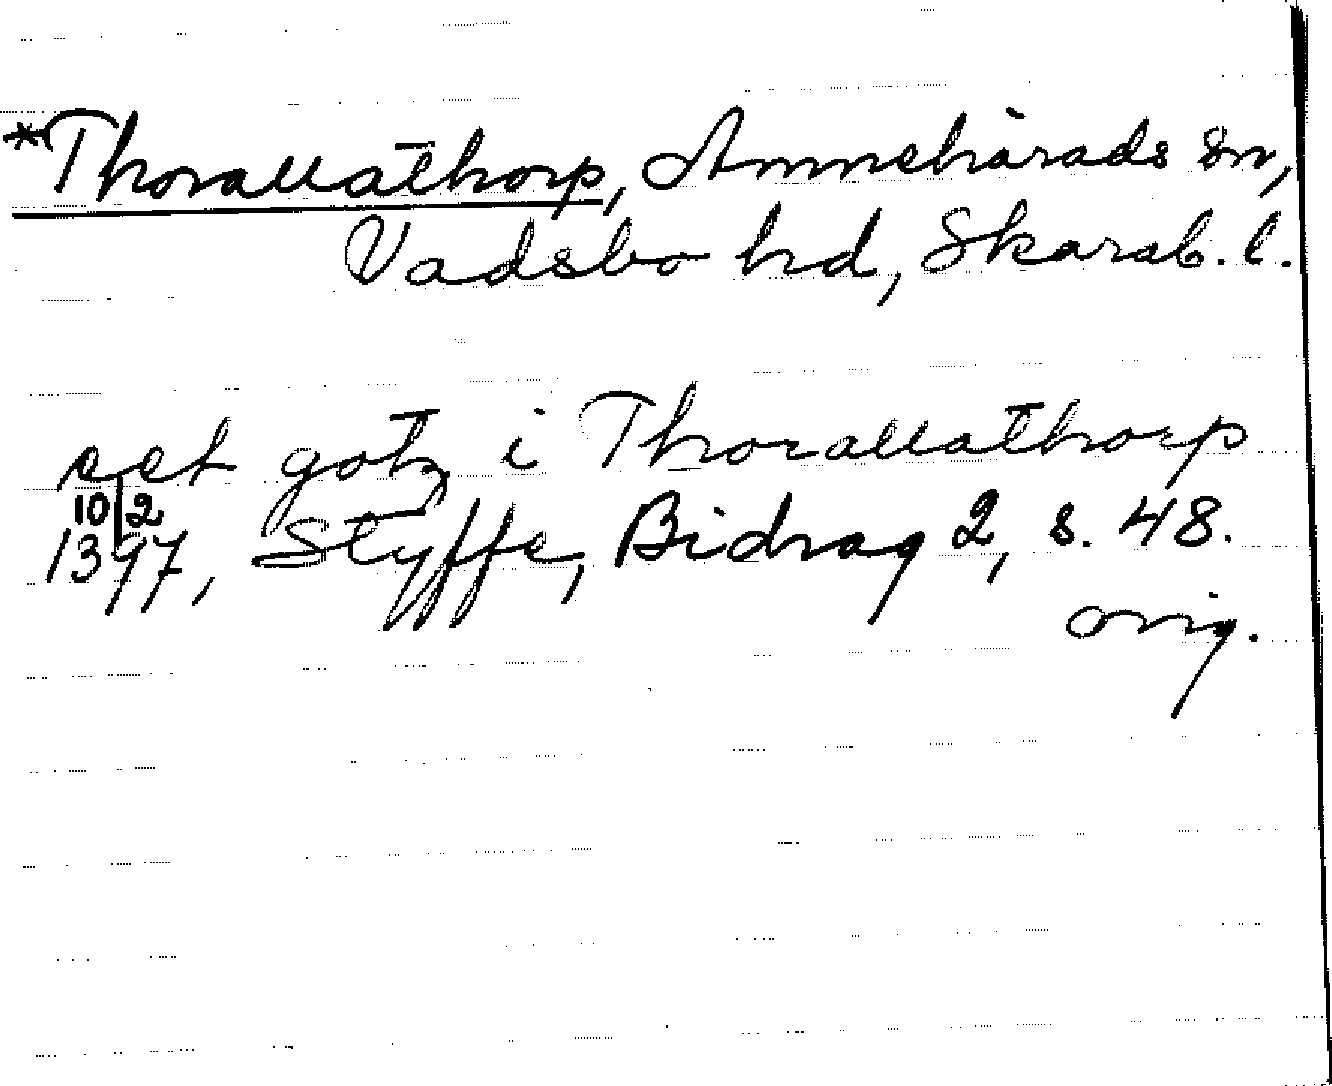 *Thorallathorp, Amnehärads sn,
Vadsbo hd, Skarab. l.
eet gotz i Thorallathorp
10|2
1397, Styffe, Bidrag 2, s. 48.
orig.